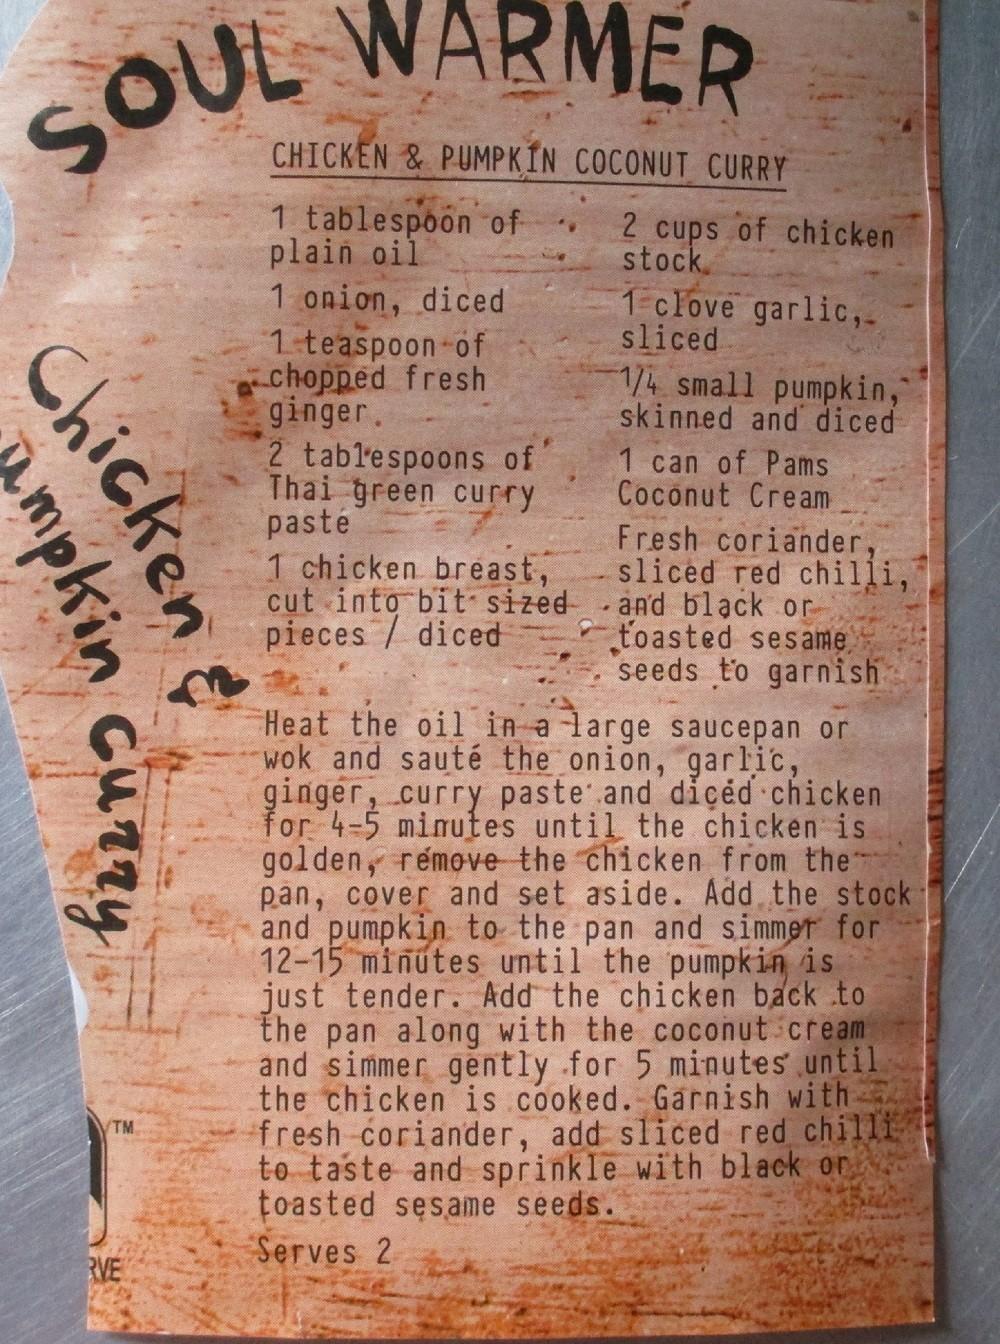 SOUL WARMER
CHICKEN & PUMPKIN COCONUT CURRY
1 tablespoon of
plain oil
1 onion, diced
1 teaspoon of
chopped fresh
ginger
2 tablespoons of
Thai green curry
paste
1 chicken breast,
cut into bit sized
pieces / diced
2 cups of chicken
stock
1 clove garlic,
sliced
1/4 small pumpkin,
skinned and diced
1 can of Pams
Coconut Cream
Fresh coriander,
sliced red chilli,
and black or
toasted sesame
seeds to garnish
Chicken &
umpkin curry
Heat the oil in a large saucepan or
wok and sauté the onion, garlic,
ginger, curry paste and diced chicken
for 4-5 minutes until the chicken is
golden, remove the chicken from the
pan, cover and set aside. Add the stock
and pumpkin to the pan and simmer for
12-15 minutes until the pumpkin is
just tender. Add the chicken back to
the pan along with the coconut cream
and simmer gently for 5 minutes until
the chicken is cooked. Garnish with
fresh coriander, add sliced red chilli
to taste and sprinkle with black or
toasted sesame seeds.
Serves 2
TM
RVE